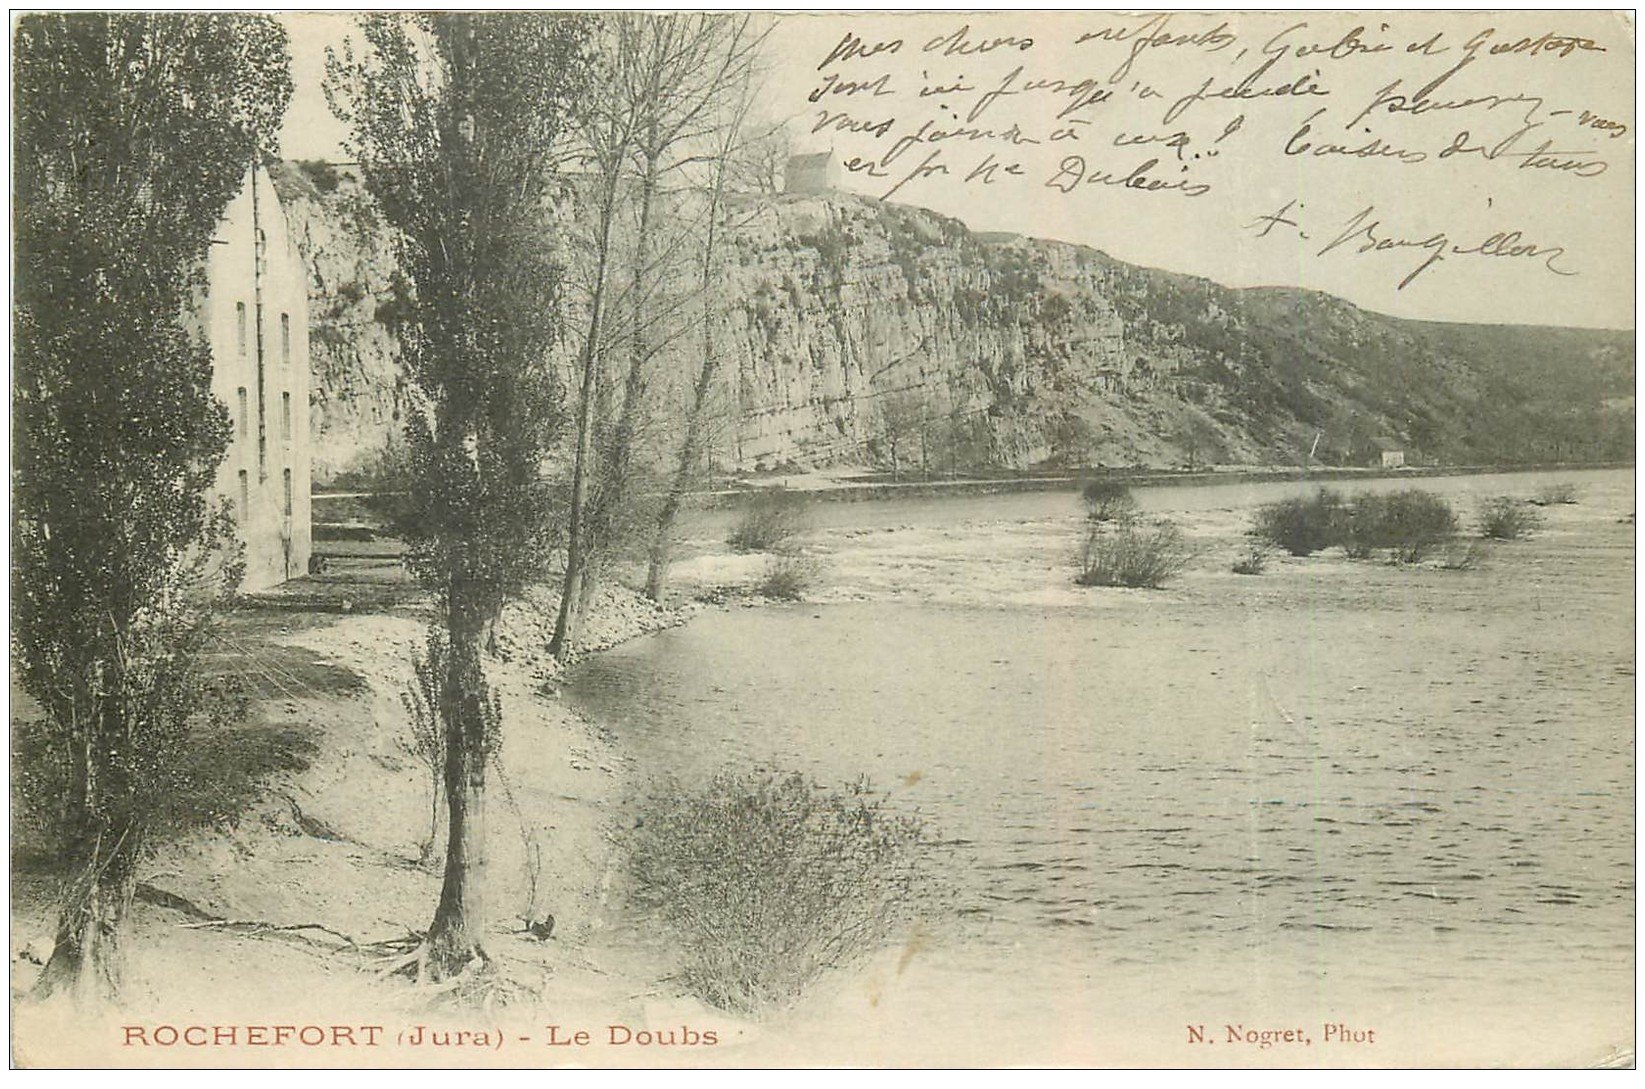 Mes chers enfants, Gabri et Gustave
sont ici jusqu'à jeudi pouvez-vous
vous joindre à eux ? Baisers de tous
et pr Me Dubois
Rochefort (Jura) - Le Doubs
N. Nogret, Phot